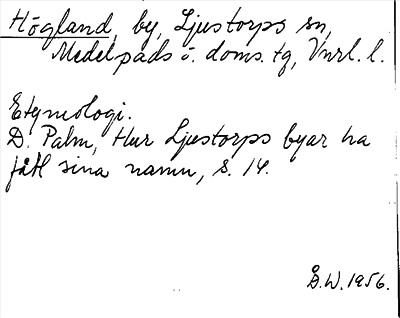 Högland, by, Ljustorps sn,
Medelpads ö. doms. tg, Vnrl. l.
Etymologi.
D. Palm, Hur Ljustorps byar ha
fått sina namn, s. 14.
Å.W. 1956.